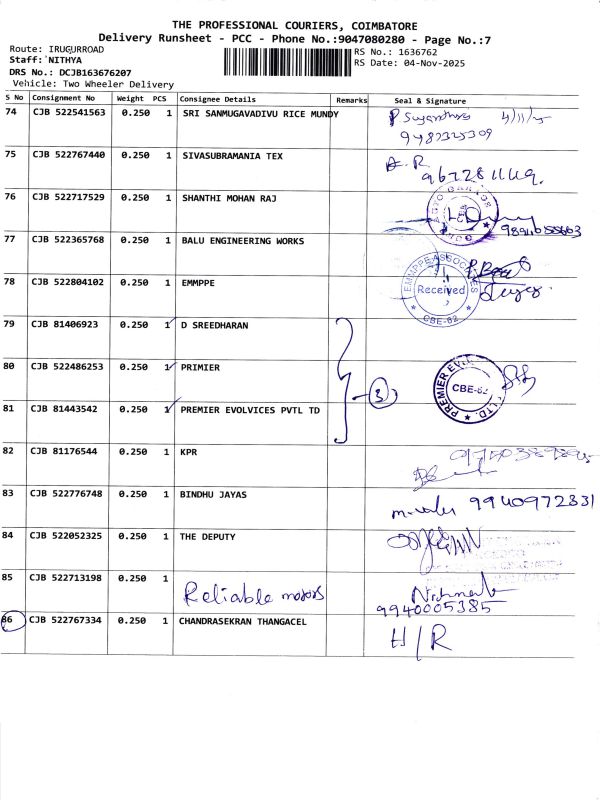 THE PROFESSIONAL COURIERS, COIMBATORE
Delivery Runsheet - PCC - Phone No.:9047080280 - Page No.:7
Route: IRUGURROAD
Staff: NITHYA
DRS No.: DCJB163676207
Vehicle: Two Wheeler Delivery
RS No.: 1636762
RS Date: 04-Nov-2025
S No Consignment No Weight PCS Consignee Details Remarks Seal & Signature
74 CJB 522541563 0.250 1 SRI SANMUGAVADIVU RICE MUNDY
75 CJB 522767440 0.250 1 SIVASUBRAMANIA TEX
76 CJB 522717529 0.250 1 SHANTHI MOHAN RAJ
77 CJB 522365768 0.250 1 BALU ENGINEERING WORKS
78 CJB 522804102 0.250 1 EMMPPE EMMPPE ASSOCIATES Received CBE-62
79 CJB 81406923 0.250 1 D SREEDHARAN
80 CJB 522486253 0.250 1 PRIMIER 3 CBE-62
81 CJB 81443542 0.250 1 PREMIER EVOLVICES PVTL TD
82 CJB 81176544 0.250 1 KPR
83 CJB 522776748 0.250 1 BINDHU JAYAS 9940972831
84 CJB 522052325 0.250 1 THE DEPUTY
85 CJB 522713198 0.250 1 Reliable motors 9940005385
86 CJB 522767334 0.250 1 CHANDRASEKRAN THANGACEL H/R